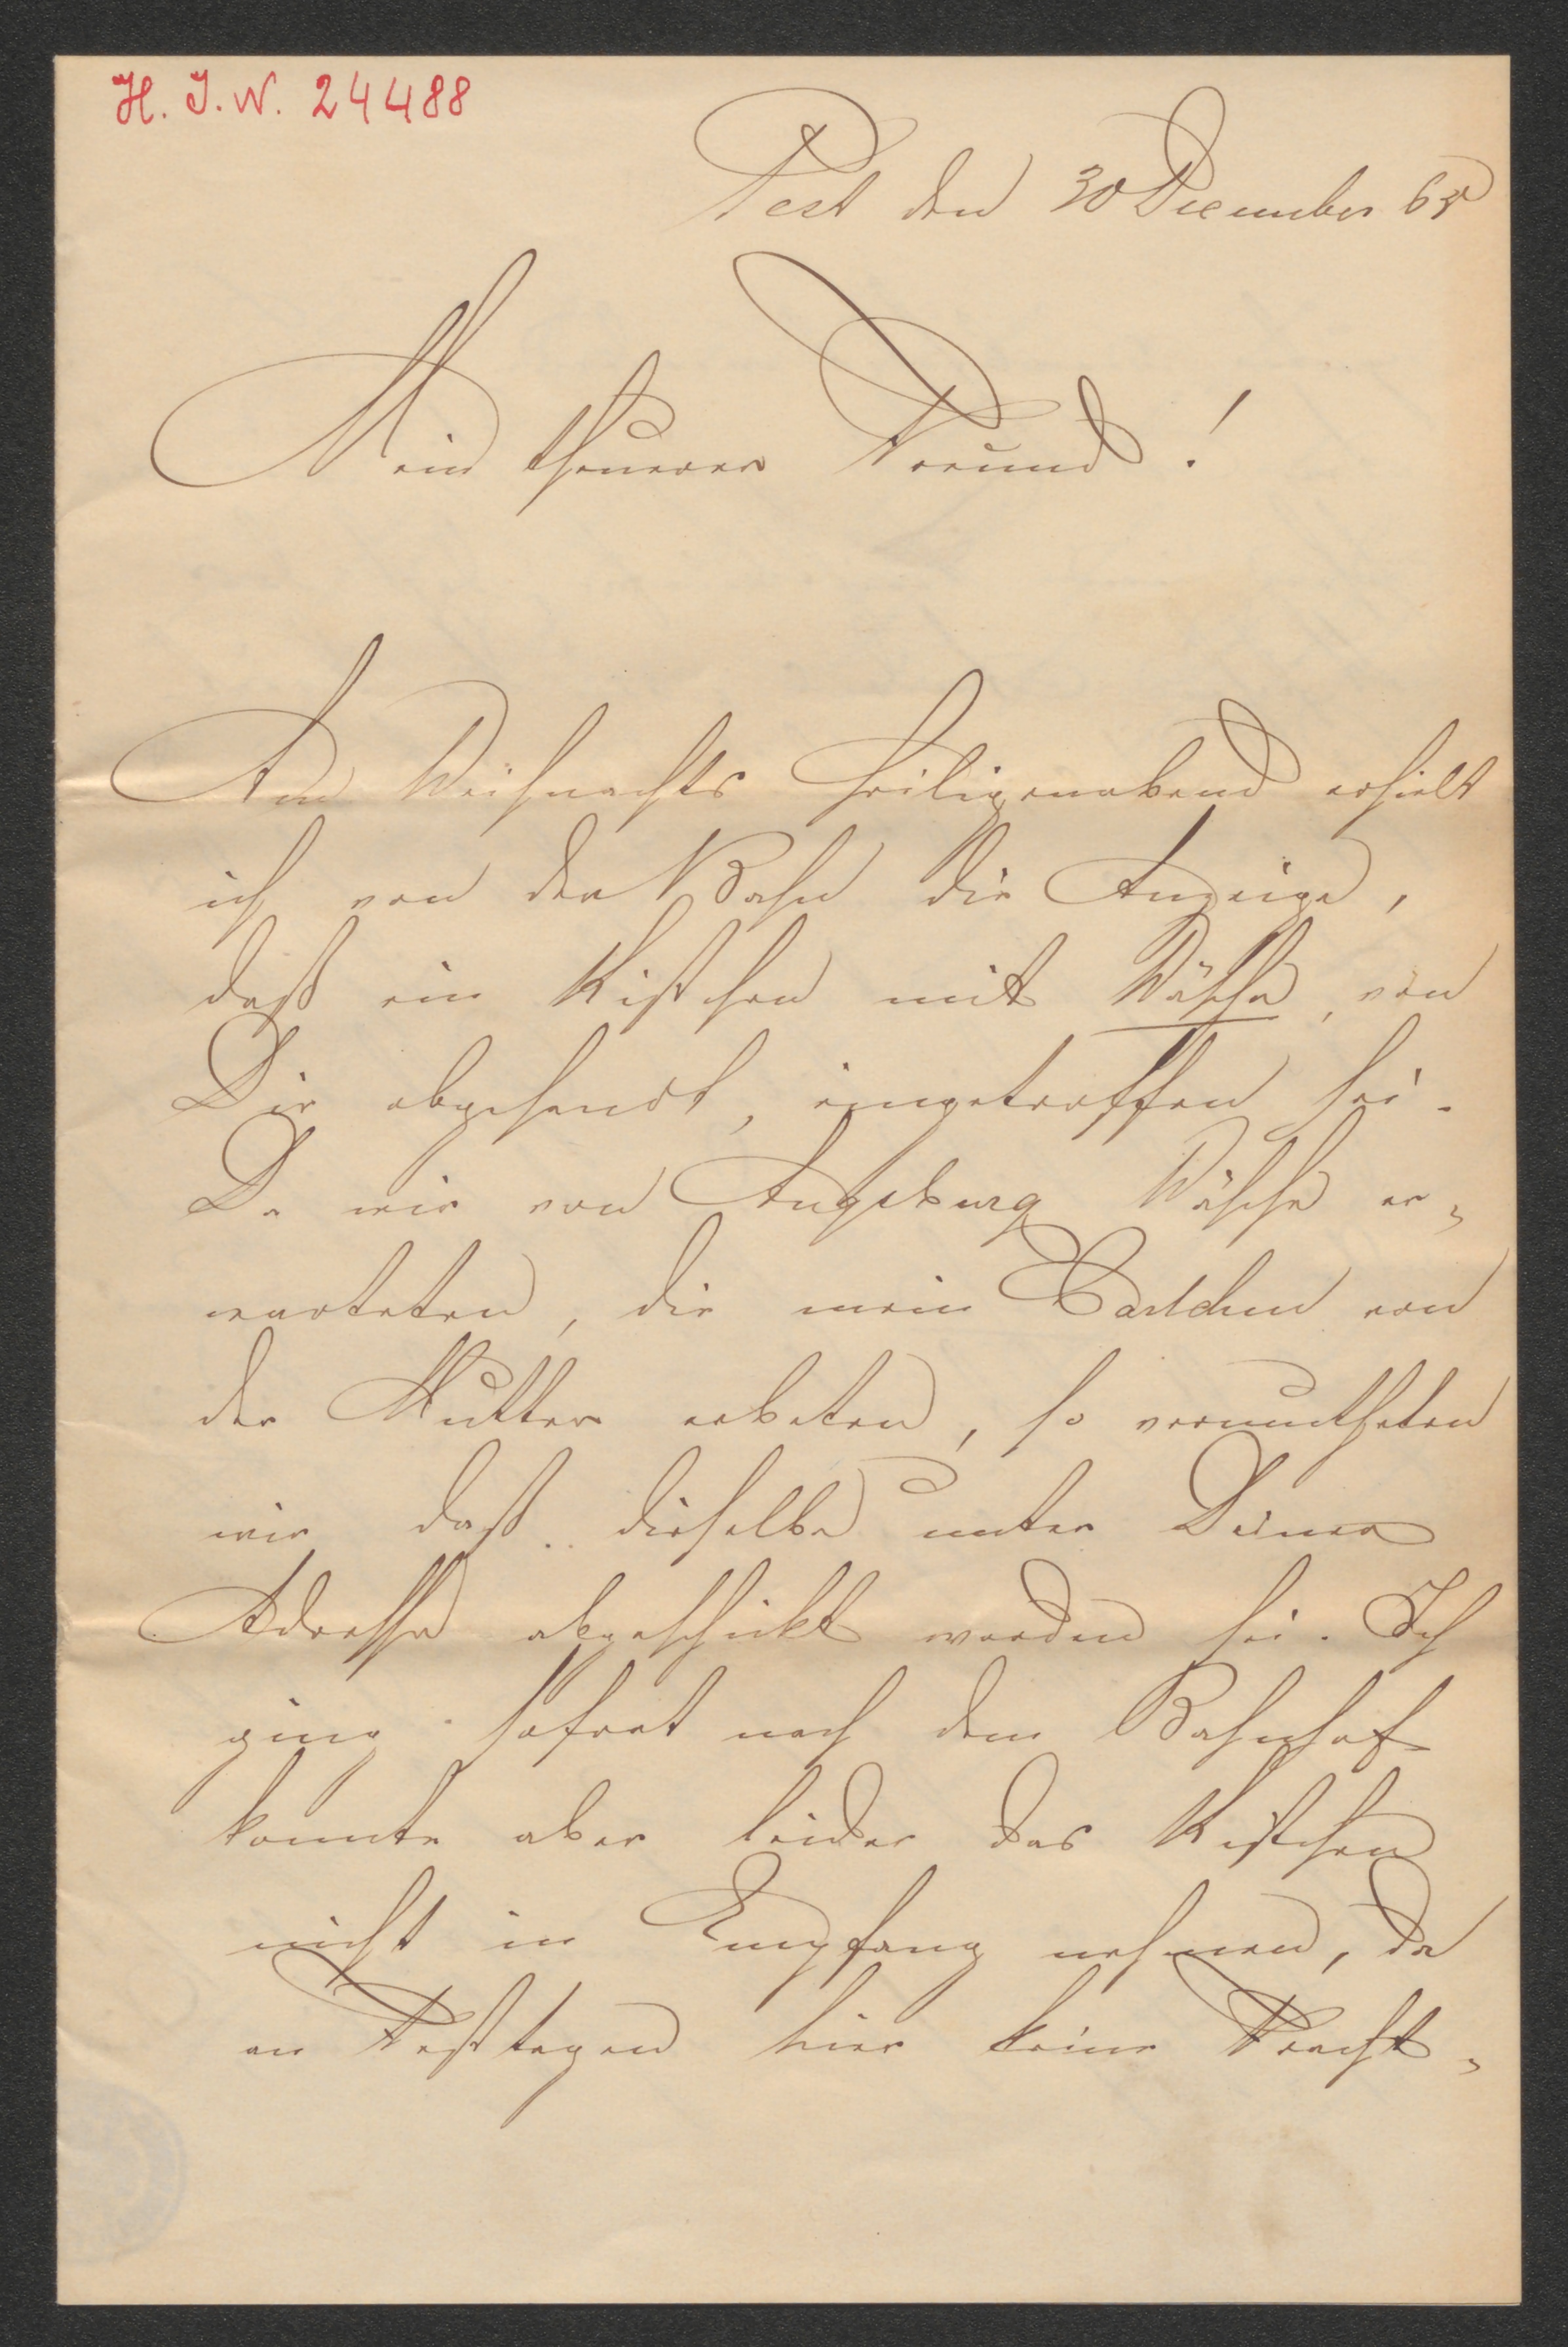 H. I. N. 24488
Pest den 30 December 65
Mein theurer Freund!
Am Weihnachts Heiligenabend erhielt
ich von der Bahn die Anzeige,
daß ein Kistchen mit Wäsche, von
Dir abgesandt, eingetroffen sei.
Da wir von Augsburg Wäsche er-
warteten, die mein Carlchen von
der Mutter erbeten, so vermutheten
wir daß dieselbe unter Deiner
Adresse abgeschickt worden sei. Ich
ging sofort nach dem Bahnhof
konnte aber leider das Kistchen
nicht in Empfang nehmen, da
an Festtagen hier keine Fracht-